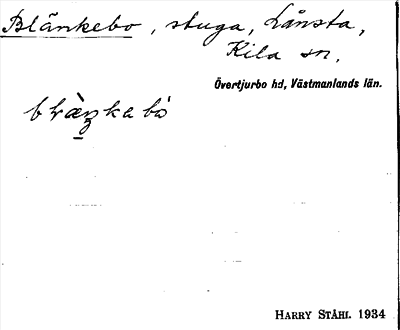 Blänkebo, stuga, Lånsta,
Kila sn,
Övertjurbo hd, Västmanlands län.
HARRY STÅHL 1934